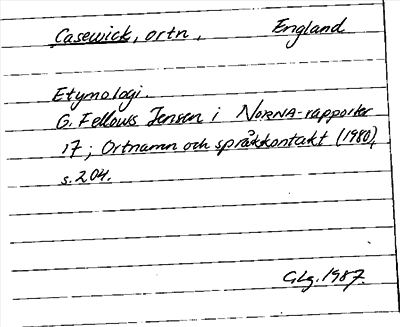 Casewick, ortn., England
Etymologi
G. Fellows Jensen i NORNA-rapporter
17; Ortnamn och språkkontakt (1980),
s. 204.
GLg. 1987.